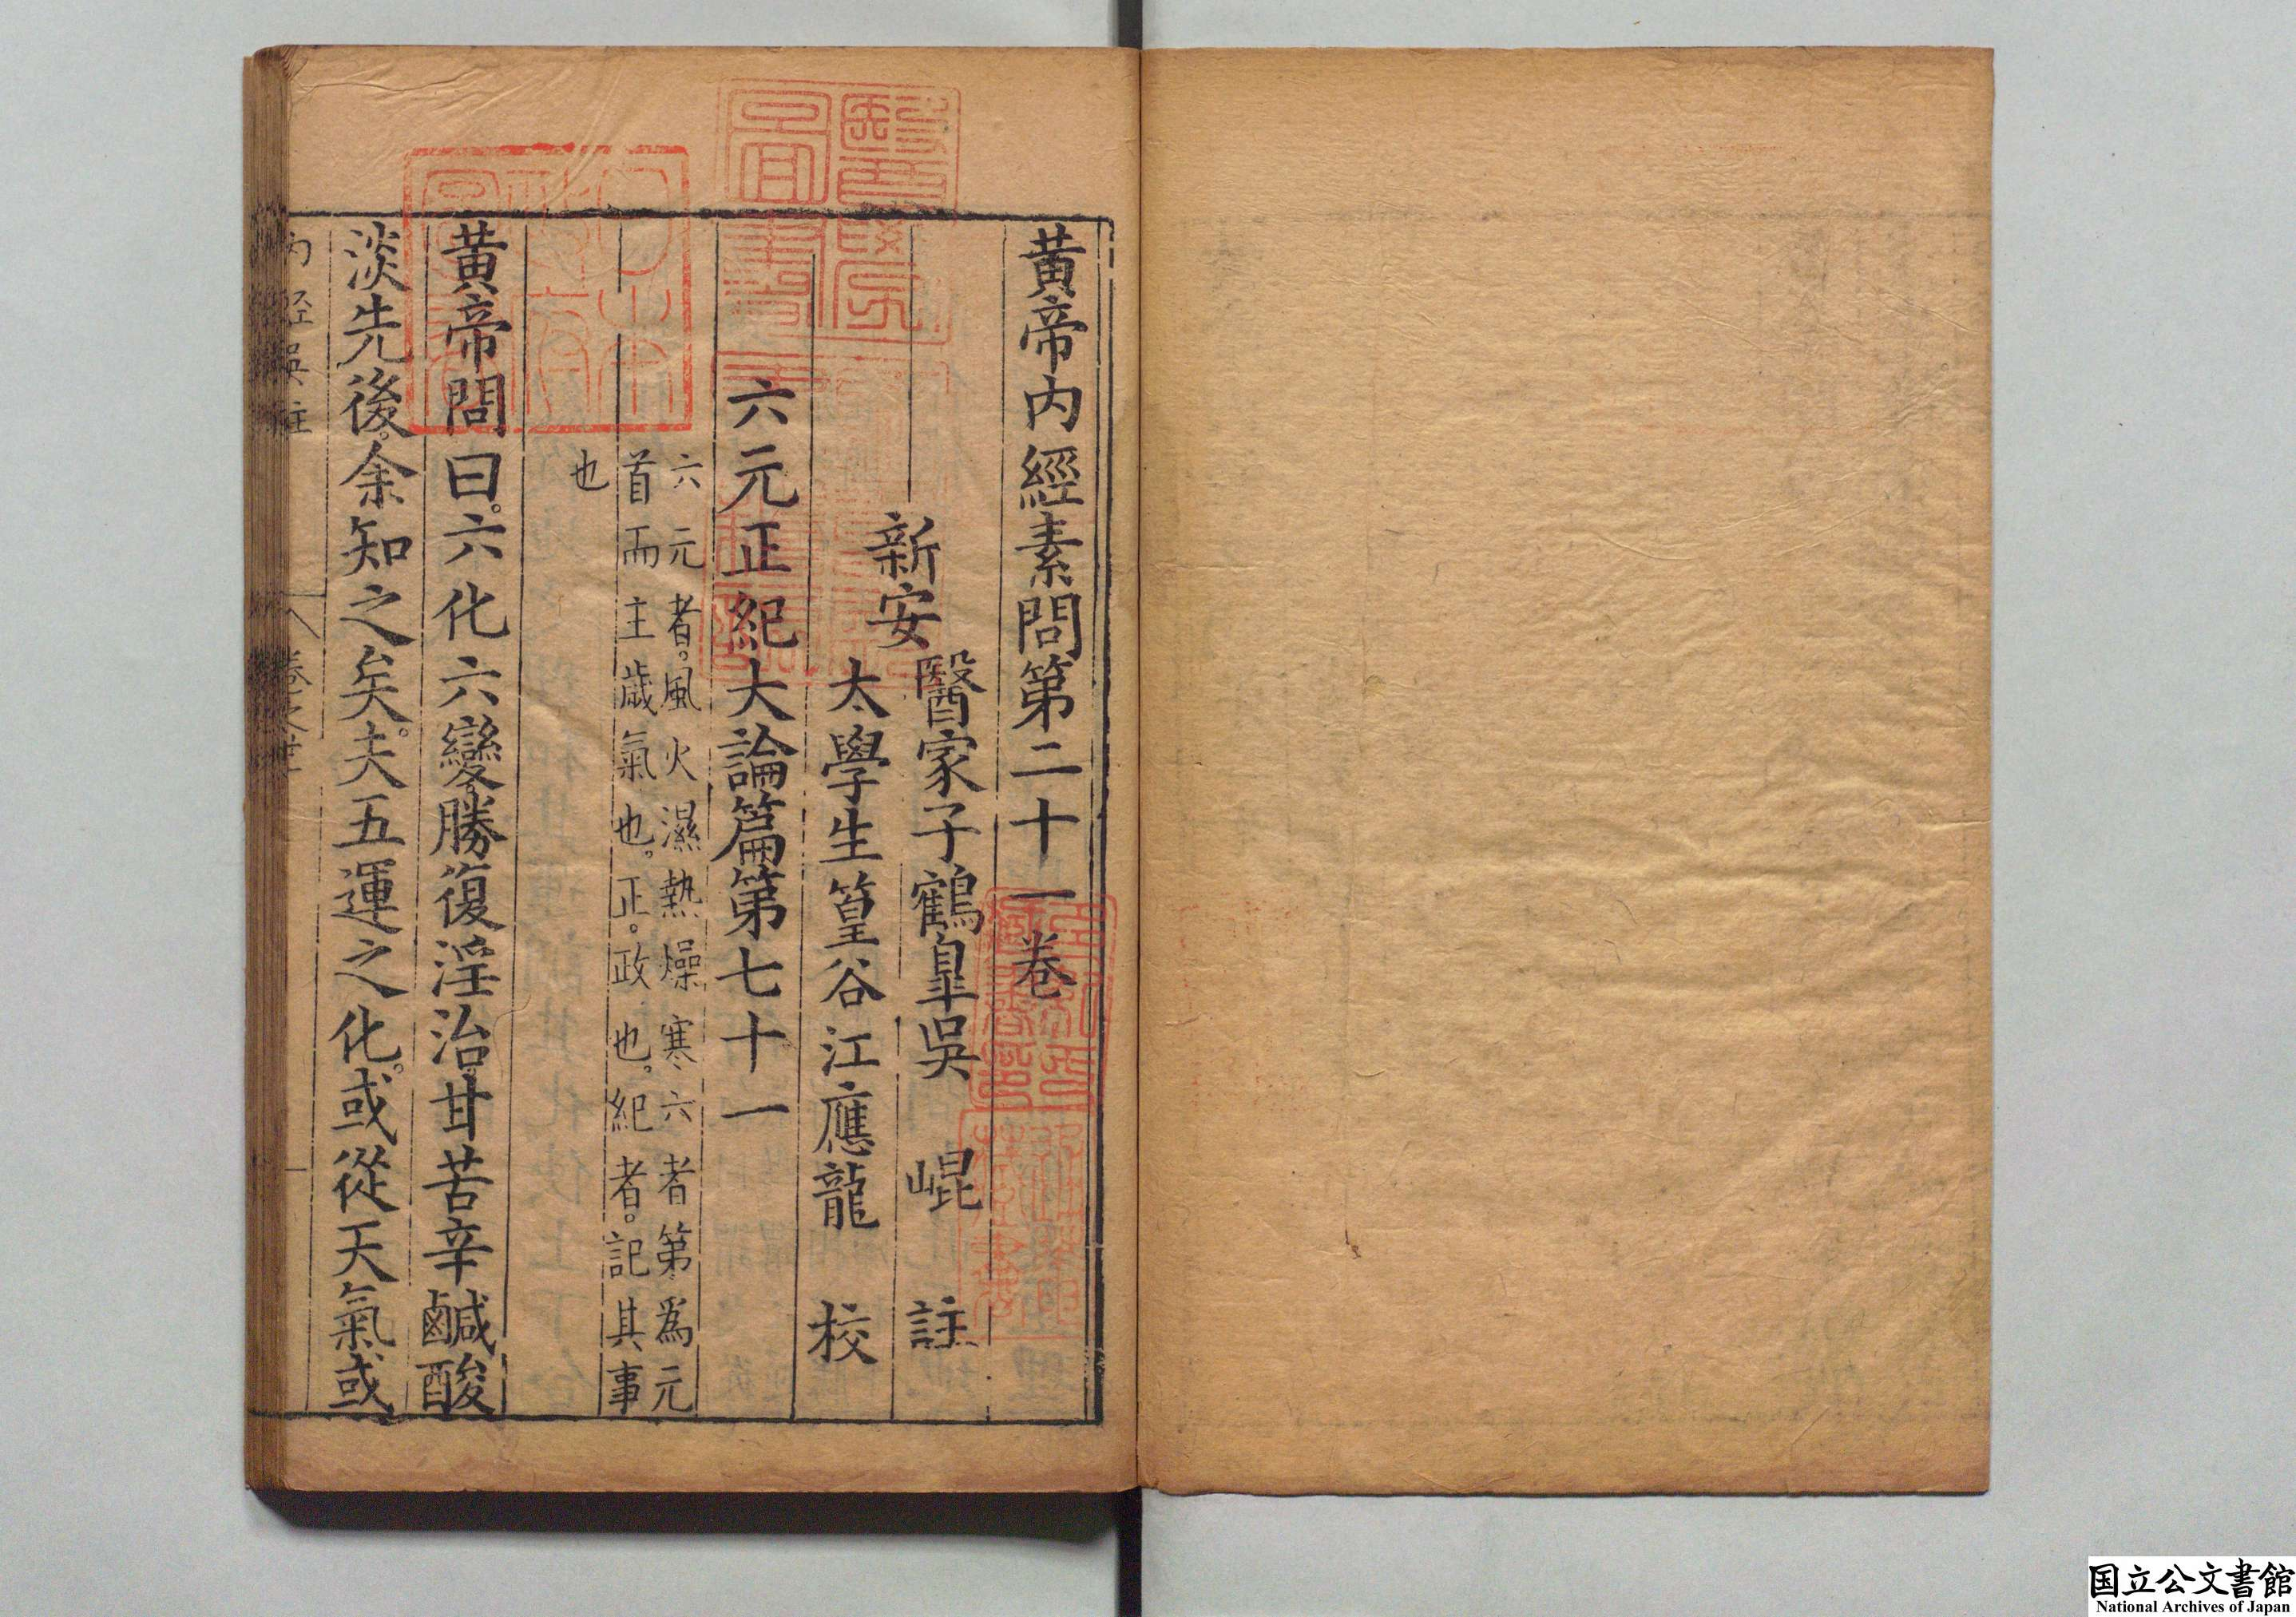 黃帝内經素問第二十一卷
新安
醫家子鶴皐吳　崐　註
太學生篁谷江應龍　校
六元正紀大論篇第七十一
六元者。風火濕熱燥寒六者第爲元
首而主歲氣也。正。政也。紀者。記其事
也
黃帝問曰。六化六變。勝復淫治。甘苦辛鹹酸
淡先後。余知之矣。夫五運之化。或從天氣或
国立公文書館
National Archives of Japan